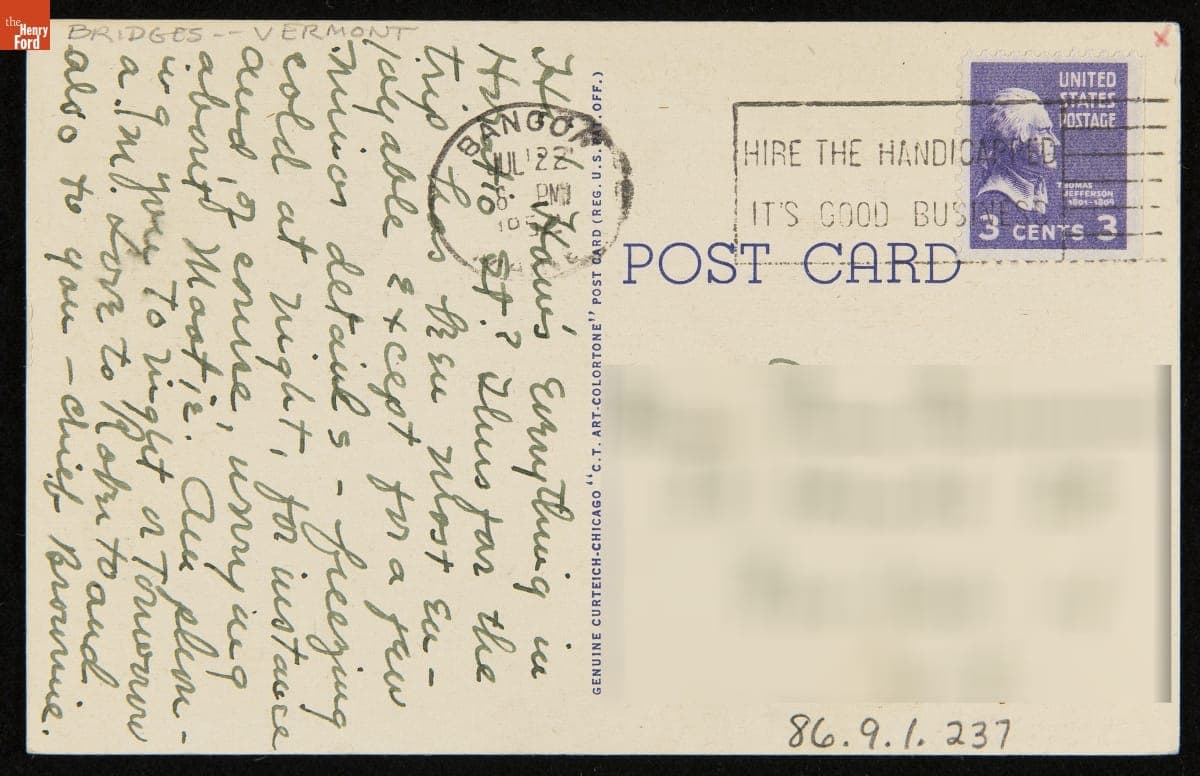 the
Henry
Ford
BRIDGES -- VERMONT
UNITED
STATES
POSTAGE
THOMAS
JEFFERSON
1801-1809
3 CENTS 3
BANGOR
JUL 22
8 PM
HIRE THE HANDICAPPED
IT'S GOOD BUSINESS
POST CARD
GENUINE CURTEICH-CHICAGO "C.T. ART-COLORTONE" POST CARD (REG. U.S. PAT. OFF.)
How's Everything in
St? Thus far the
trip has been most en-
joyable except for a few
minor details - freezing
cold at night, for instance
and, of course, worrying
about Mastie. Am phon-
ing you tonight or tomorrow
a.m. Love to and
also to you - chief Brownie.
86.9.1.237